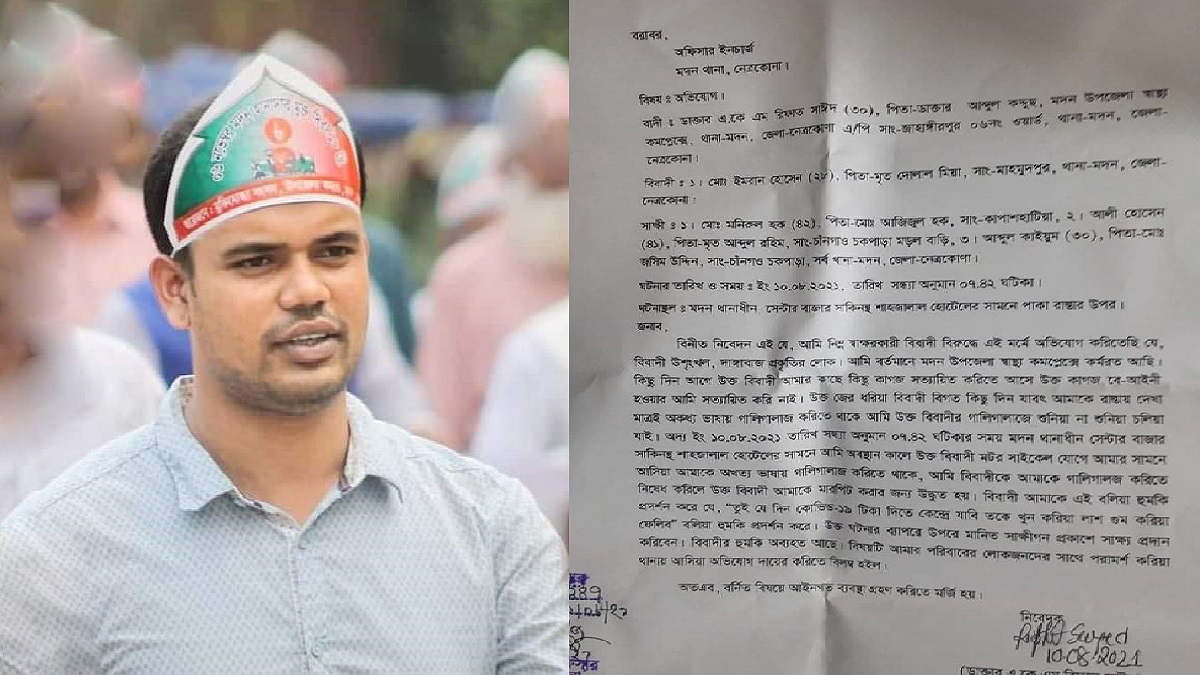 বরাবর,
অফিসার ইনচার্জ
মদন থানা, নেত্রকোনা।
বিষয় : অভিযোগ।
বাদী : ডাক্তার এ,কে এম রিফাত সাঈদ (৩০), পিতা-ডাক্তার আব্দুল কদ্দুছ, মদন উপজেলা স্বাস্থ্য
কমপ্লেক্সে, থানা-মদন, জেলা-নেত্রকোণা এ/পি সাং-জাহাঙ্গীরপুর ০৬নং ওয়ার্ড, থানা-মদন, জেলা-
নেত্রকোনা।
বিবাদী : ১। মোঃ ইমরান হোসেন (২৮), পিতা-মৃত দোলাল মিয়া, সাং-মাহমুদপুর, থানা-মদন, জেলা-
নেত্রকোনা।
সাক্ষী : ১। মোঃ মনিরুল হক (৪২), পিতা-মোঃ আজিজুল হক, সাং-কাপাশহাটিয়া, ২। আলী হোসেন
(৪১), পিতা-মৃত আব্দুল রহিম, সাং-চাঁনগাও চকপাড়া মড়ল বাড়ি, ৩। আব্দুল কাইয়ুম (৩০), পিতা-মোঃ
জসিম উদ্দিন, সাং-চাঁনগাও চকপাড়া, সর্ব থানা-মদন, জেলা-নেত্রকোণা।
ঘটনার তারিখ ও সময় : ইং ১০.০৮.২০২১, তারিখ সন্ধ্যা অনুমান ০৭.৪২ ঘটিকা।
ঘটনাস্থল : মদন থানাধীন সেন্টার বাজার সকিনস্থ শাহজালাল হোটেলের সামনে পাকা রাস্তার উপর।
জনাব,
বিনীত নিবেদন এই যে, আমি নিম্ন স্বাক্ষরকারী বিবাদী বিরুদ্ধে এই মর্মে অভিযোগ করিতেছি যে,
বিবাদী উশৃংখল, দাঙ্গাবাজ প্রকৃতির লোক। আমি বর্তমানে মদন উপজেলা স্বাস্থ্য কমপ্লেক্সে কর্মরত আছি।
কিছু দিন আগে উক্ত বিবাদী আমার কাছে কিছু কাগজ সত্যায়িত করিতে আসে উক্ত কাগজ বে-আইনী
হওয়ার আমি সত্যায়িত করি নাই। উক্ত জের ধরিয়া বিবাদী বিগত কিছু দিন যাবৎ আমাকে রাস্তায় দেখা
মাত্রই অকথ্য ভাষায় গালিগালাজ করিতে থাকে আমি উক্ত বিবাদীর গালিগালাজে শুনিয়া না শুনিয়া চলিয়া
যাই। অদ্য ইং ১০.০৮.২০২১ তারিখ সন্ধ্যা অনুমান ০৭.৪২ ঘটিকার সময় মদন থানাধীন সেন্টার বাজার
সাকিনস্থ শাহজালাল হোটেলের সামনে আমি অবস্থান কালে উক্ত বিবাদী মটর সাইকেল যোগে আমার সামনে
আসিয়া আমাকে অখত্য ভাষায় গালিগালাজ করিতে থাকে, আমি বিবাদীকে আমাকে গালিগালজ করিতে
নিষেধ করিলে উক্ত বিবাদী আমাকে মারপিট করার জন্য উদ্ধৃত হয়। বিবাদী আমাকে এই বলিয়া হুমকি
প্রদর্শন করে যে, "তুই যে দিন কোভিড-১৯ টিকা দিতে কেন্দ্রে যাবি তকে খুন করিয়া লাশ গুম করিয়া
ফেলিব" বলিয়া হুমকি প্রদর্শন করে। উক্ত ঘটনার ব্যাপারে উপরে মানিত সাক্ষীগন প্রকাশে সাক্ষ্য প্রদান
করিবেন। বিবাদীর হুমকি অব্যহত আছে। বিষয়টি আমার পরিবারের লোকজনদের সাথে পরামর্শ করিয়া
থানায় আসিয়া অভিযোগ দায়ের করিতে বিলম্ব হইল।
অতএব, বর্নিত বিষয়ে আইনগত ব্যবস্থা গ্রহণ করিতে মর্জি হয়।
নিবেদক
10.08.2021